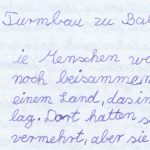 Turmbau zu Ba
ie Menschen w
noch beisammen
einem Land, das in
lag. Dort hatten s
vermehrt, aber sie